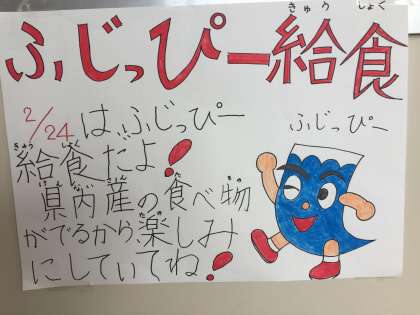 ふじっぴー給食
きゅう しょく
2/24はふじっぴー
ふじっぴー
給食だよ!
きゅう しょく
県内産の食べ物
がでるから楽しみ
にしていてね!